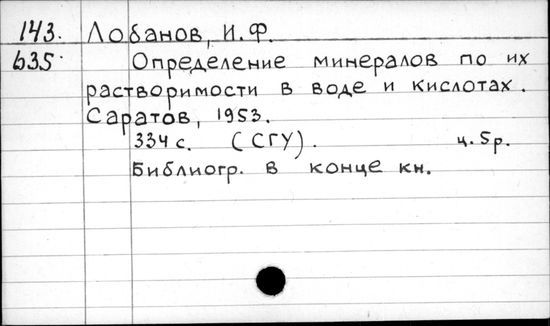 143. Лобанов, И.Ф.
б35. Определение минералов по их
растворимости в воде и кислотах.
Саратов, 1953.
334 с. (СГУ). ц. 5р.
Библиогр. в конце кн.